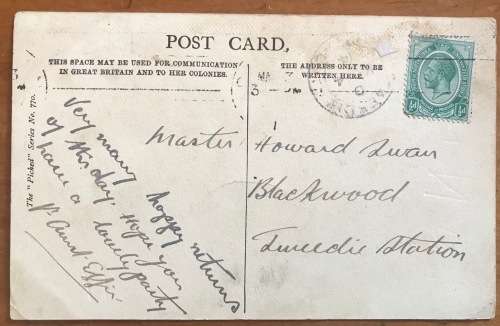 POST CARD,
THIS SPACE MAY BE USED FOR COMMUNICATION
IN GREAT BRITAIN AND TO HER COLONIES.
THE ADDRESS ONLY TO BE
WRITTEN HERE.
The "Picked" Series No. 770.
Very many happy returns
of this day. Hope you
have a lovely party
Aunt Effie
Master Howard Swan
Blackwood
Tweedie Station
½d